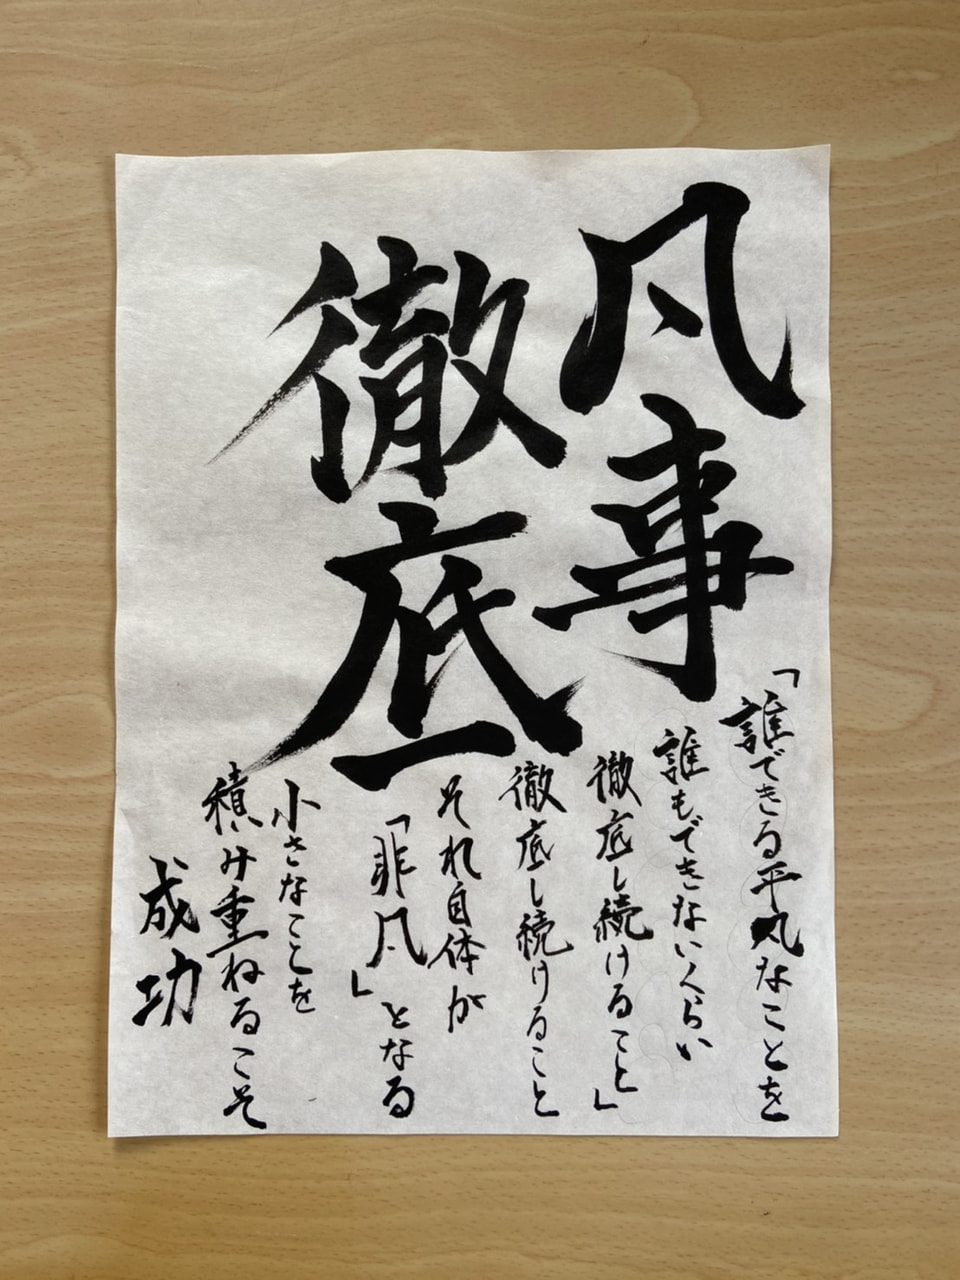 凡事
徹底
「誰できる平凡なことを
誰もできないくらい
徹底し続けること」
徹底し続けること
それ自体が
「非凡」となる
小さなことを
積み重ねるこそ
成功